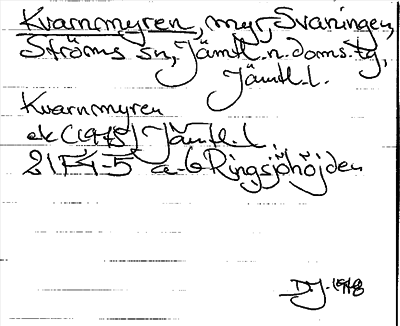 Kvarnmyren, myr, Svaningen,
Ströms sn, Jämtl. n. doms. tg,
Jämtl. l.
Kvarnmyren
ek (1948) Jämtl. l.
21F4-5 a-b Ringsjöhöjden
DJ. 1948